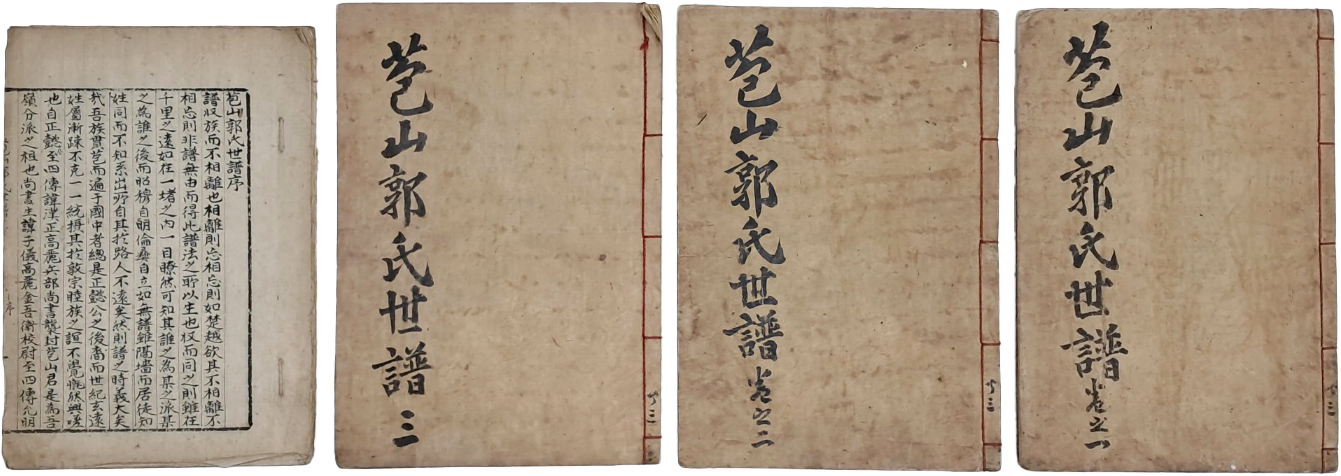 苞山郭氏世譜序
譜収族而不相離也相離則忘相忘則如楚越欲其不相離不
相忘則非譜無由而得此譜法之所以生也収而同之則雖在
千里之遠如在一堵之內一目瞭然可知其誰之爲某之派某
之爲誰之後而昭穆自明倫彝自立如無譜雖隔墻而居徒知
姓同而不知系出所自其於路人不遠矣然則譜之時義大矣
㢤吾族貫苞而遍于國中者總是正懿公之後裔而世紀玄遠
姓屬漸疎不克一一統摄其於敦宗睦族之誼不覺慨然興嗟
也自正懿至四傳諱漢正高麗兵部尚書襲封苞山君是爲吾
嶺分派之祖也尚書生諱子儀高麗金吾衛校尉至四傳允明
序
苞山郭氏世譜 三
苞山郭氏世譜 卷之二
共三
苞山郭氏世譜 卷之一
共三
共三